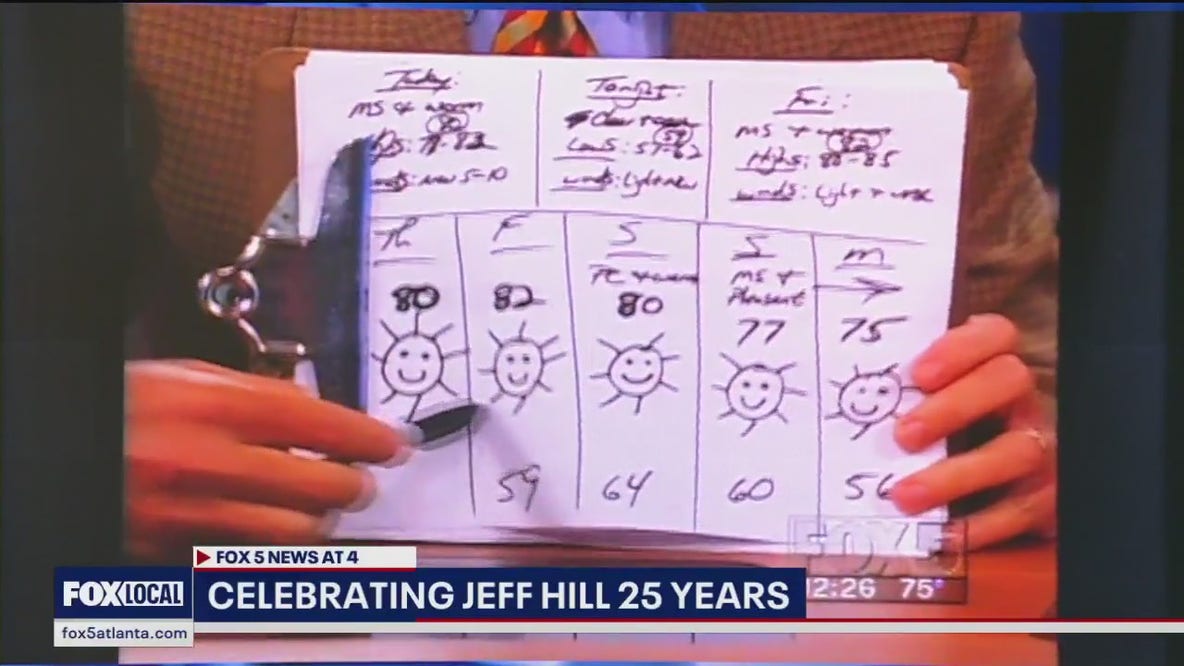 Today: Tonight: Fri:
MS & warm Clear MS & warm
80 59 82
Highs: 79-82 Lows: 57-62 Highs: 80-85
Winds: NW 5-10 Winds: Light NW Winds: Light &
Th F S S M
PC & warm MS & Pleasant
80 82 80 77 75
59 64 60 56
FOX 5
12:26 75°
FOX 5 NEWS AT 4
FOX LOCAL
CELEBRATING JEFF HILL 25 YEARS
fox5atlanta.com